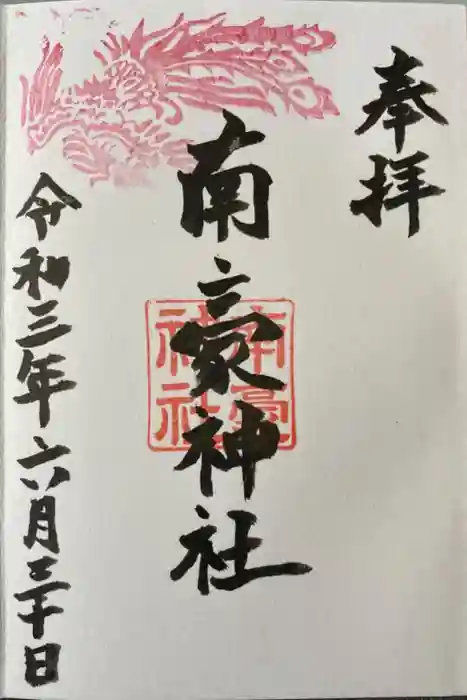 奉拝
南豪神社
南豪
神社
令和三年六月三十日